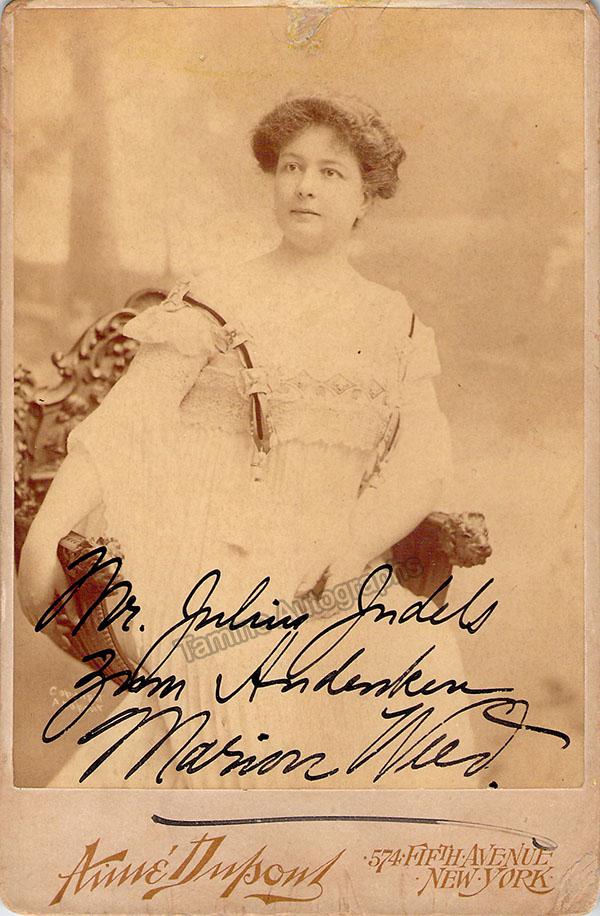 Mr. Julius Judels
Tamino Autographs
Zum Andenken
Marion Weed.
Aimé Dupont
574 · FIFTH · AVENUE
NEW YORK